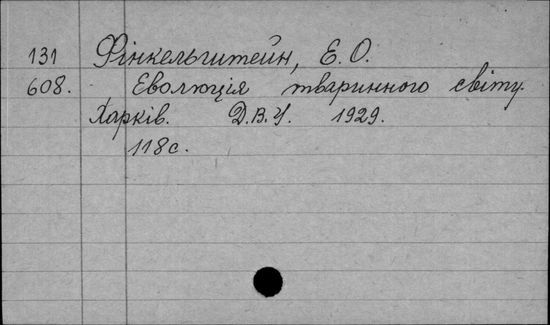 131 Фінкельштейн, Е. О.
608. Еволюція тваринного світу.
Харків. Д.В.У. 1929.
118 с.